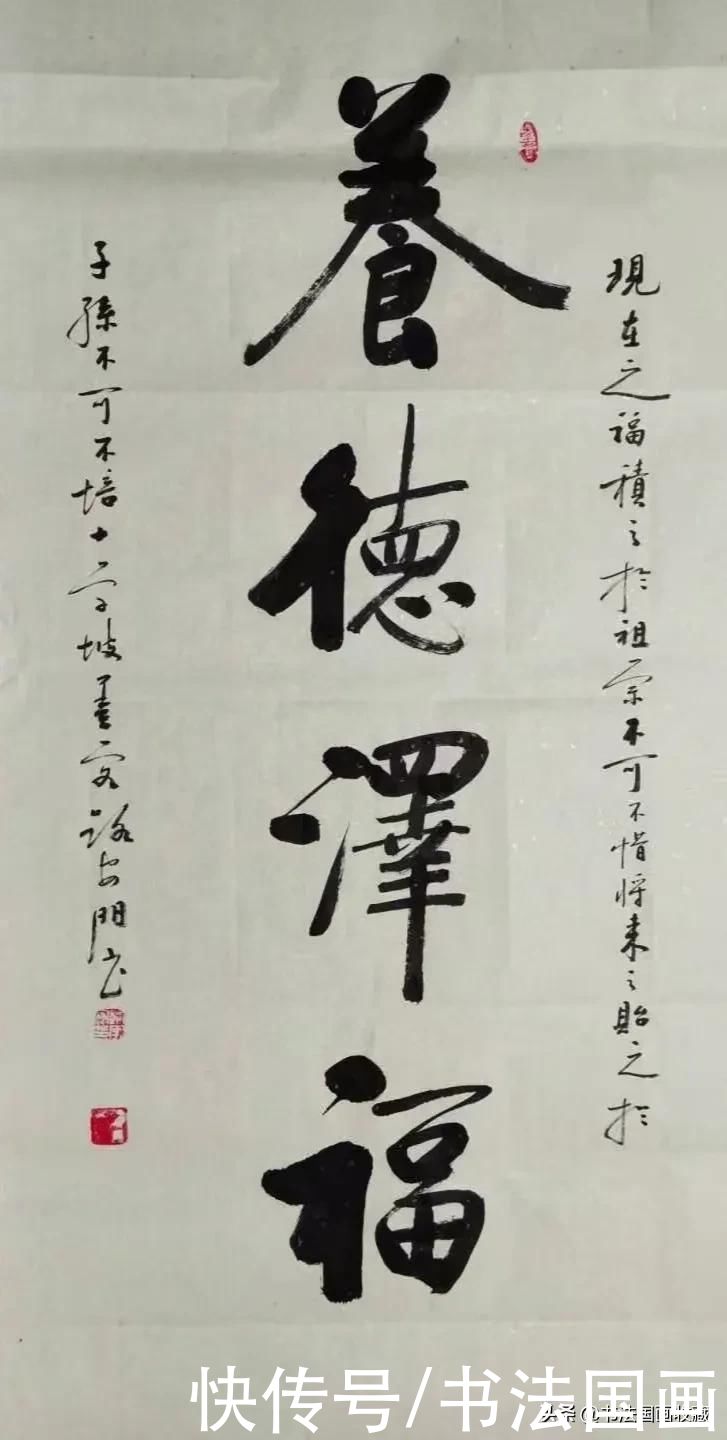 現在之福積之於祖宗不可不惜將來之貽之於
養德澤福
子孫不可不培十字坡客路安門書
快传号/书法国画
头条 @书法国画收藏